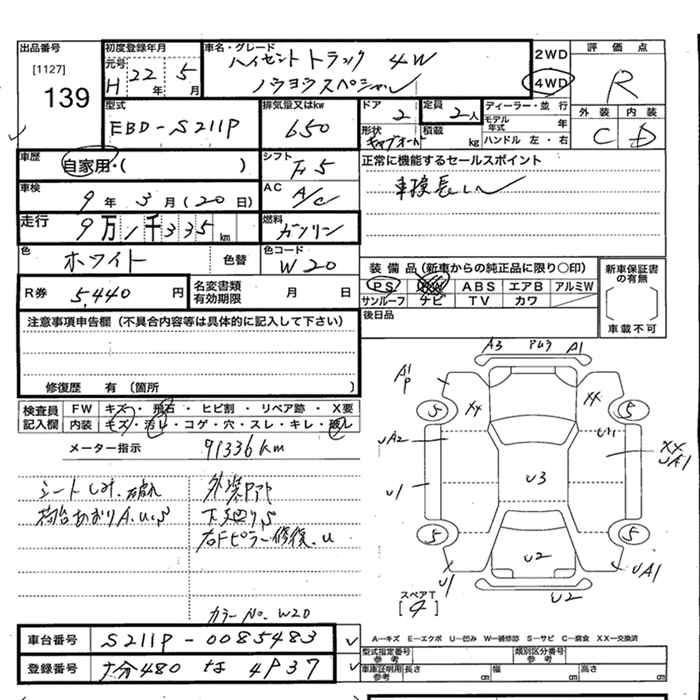 出品番号
[1127]
139
初度登録年月
元号
H 22年 5月
車名・グレード
ハイゼット トラック 4W
ノウヨウスペシャル
2WD
4WD
評価点
R
外装 内装
C D
型式
EBD-S211P
排気量又はkw
650
ドア
2
形状
定員
2人
積載 kg
ディーラー・並行
モデル年式 年
ハンドル 左・右
車歴
自家用・( )
シフト
F5
正常に機能するセールスポイント
車検長い
車検
9年3月(20日)
AC
A/C
走行
9万1千335km
燃料
ガソリン
色
ホワイト
色替
色コード
W20
装備品(新車からの純正品に限り○印)
PS ABS エアB アルミW
サンルーフ ナビ TV カワ
新車保証書の有無
車載不可
R券
5,440円
名変書類有効期限 月 日
後日品
注意事項申告欄(不具合内容等は具体的に記入して下さい)
修復歴 有(箇所
検査員記入欄
FW キズ・飛石・ヒビ割・リペア跡・X要
内装 キズ・汚レ・コゲ・穴・スレ・キレ・破レ
メーター指示
91336km
シートしみ、破れ
荷台あおりA.U.S
外装P
下廻りS
右Fピラー修復.U
カラーNo. W20
A3 A1
A1
P
X4 X4
5 5
UA2
U1
XX
UA1
U1
U3
5 5
U2
U1
UA1
U2
スペアT
[4]
A―キズ E―エクボ U―凹み W―補修跡 S―サビ C―腐食 XX―交換済
車台番号
S211P-0085483
型式指定番号参考
類別区分番号参考
登録番号
大分480 な 4P37
車庫証明用参考
長さ cm 幅 cm 高さ cm